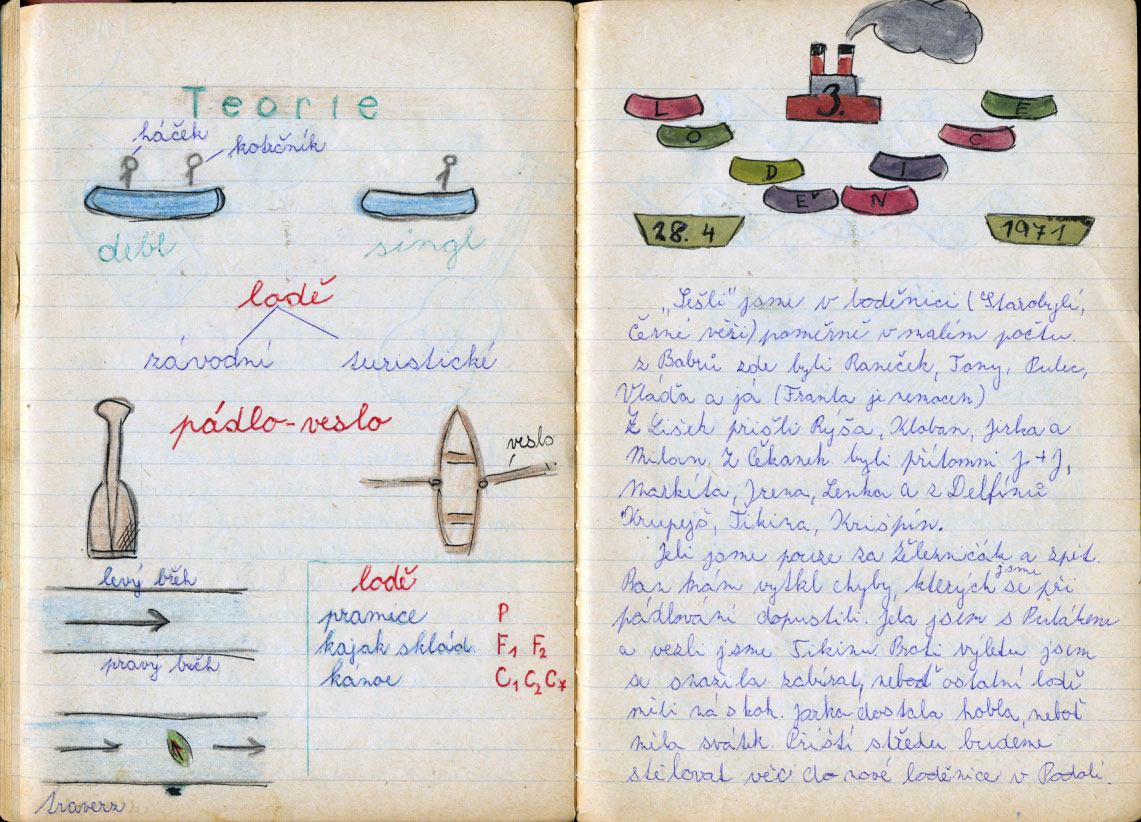 Teorie
háček
kotrčník
debl
singl
lodě
závodní turistické
pádlo-veslo
veslo
levý břeh
pravý břeh
traverz
lodě
pramice P
kajak sklád. F1 F2
kanoe C1 C2 C7
3.
LODĚNICE
28. 4 1971
„Sešli" jsme v loděnici (Starobylí,
Černé věži) poměrně v malém počtu.
z Bobrů zde byli Raneček, Tony, Pulec,
Vláďa a já (Franta je nemocen)
Z Lišek přišli Rýša, Kloban, Jirka a
Milan. Z Čekanek byli přítomni J + J,
Markéta, Irena, Lenka a z Delfínů
Krupejš, Tikina, Krišpín.
Jeli jsme pouze za Železničář a zpět.
Pan nám vytkl chyby, kterých jsme se při
pádlování dopustili. Jela jsem s Pulákem
a vezli jsme Tikinu. Proti výletu jsem
se snažila zabírat, neboď ostatní lodě
měli náskok. Jirka dostala hobla, neboť
měla svátek. Příští středu budeme
stěhovat věc do nové loděnice v Podolí.